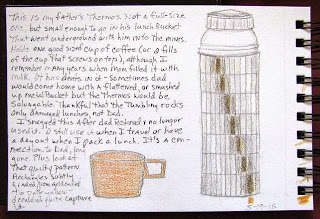 This is my father's Thermos. Not a full-size
one, but small enough to go in his lunch bucket
that went underground with him into the mines.
Holds one good sized cup of coffee (or 2 fills
of the cup that screws on top), although I
remember many years when mom filled it with
milk. It has dents in it - Sometimes dad
would come home with a flattened, or smashed
up metal bucket but the Thermos would be
Salvagable. Thankful that the Tumbling rocks
only damaged lunches, not Dad.
I snagged this after dad Retired & no longer
used it. I still use it when I travel or have
a day out when I pack a lunch. It's a con-
nection to Dad, long
gone. Plus look at
that quilty pattern
Rectangles subtly
to pale yellow
5-19-15